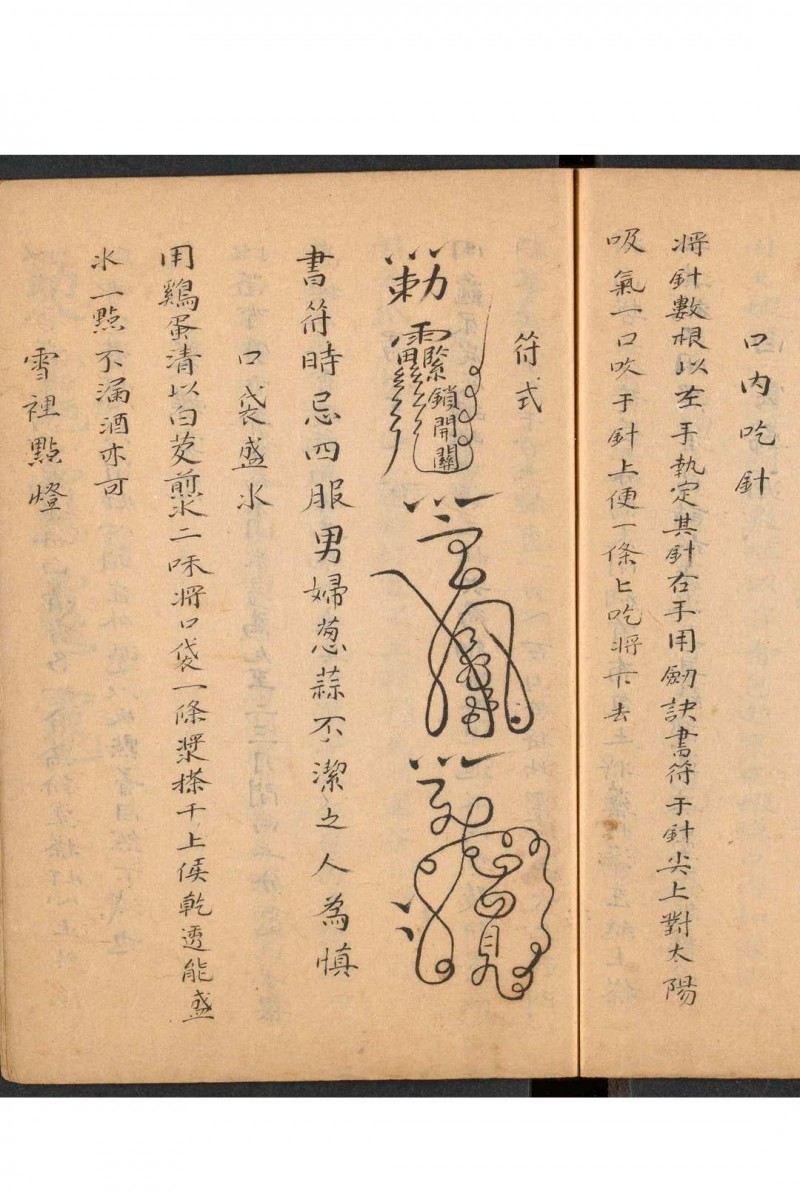 口內吃針
將針數根以左手執定其針右手用劍訣書符于針尖上對太陽
吸氣一口吹于針上便一條匕吃將下去
符式
勅 緊鎖開關
書符時忌四服男婦葱蒜不潔之人為慎
口袋盛水
用鷄蛋清以白芨煎水二味將口袋一條漿搽于上侯乾透能盛
水一點不漏酒亦可
雪裡點燈